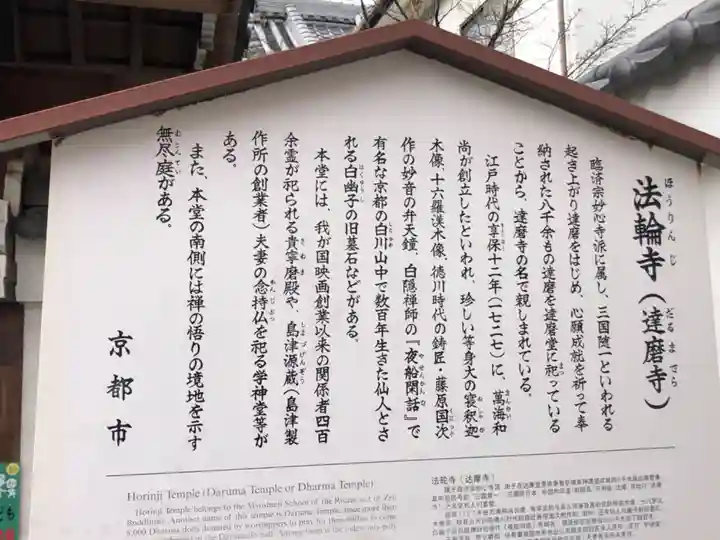 法輪寺（達磨寺）
ほうりんじ だるまでら
臨済宗妙心寺派に属し、三国随一といわれる
起き上がり達磨をはじめ、心願成就を祈って奉
納された八千余もの達磨を達磨堂に祀っている
ことから、達磨寺の名で親しまれている。
江戸時代の享保十二年（一七二七）に、萬海和
尚が創立したといわれ、珍しい等身大の寝釈迦
木像、十六羅漢木像、徳川時代の鋳匠・藤原国次
作の妙音の弁天鐘、白隠禅師の『夜船閑話』で
有名な京都の白川山中で数百年生きた仙人とさ
れる白幽子の旧墓石などがある。
本堂には、我が国映画創業以来の関係者四百
余霊が祀られる貴寧磨殿や、島津源蔵（島津製
作所の創業者）夫妻の念持仏を祀る学神堂等が
ある。
また、本堂の南側には禅の悟りの境地を示す
無尽庭がある。
京都市
Horinji Temple (Daruma Temple or Dharma Temple)
Horinji Temple belongs to the Myoshinji School of the Rinzai sect of Zen
Buddhism. Another name of this temple is Daruma Temple, since more than
8,000 Dharma dolls donated by worshippers to pray for
法轮寺（达摩寺）